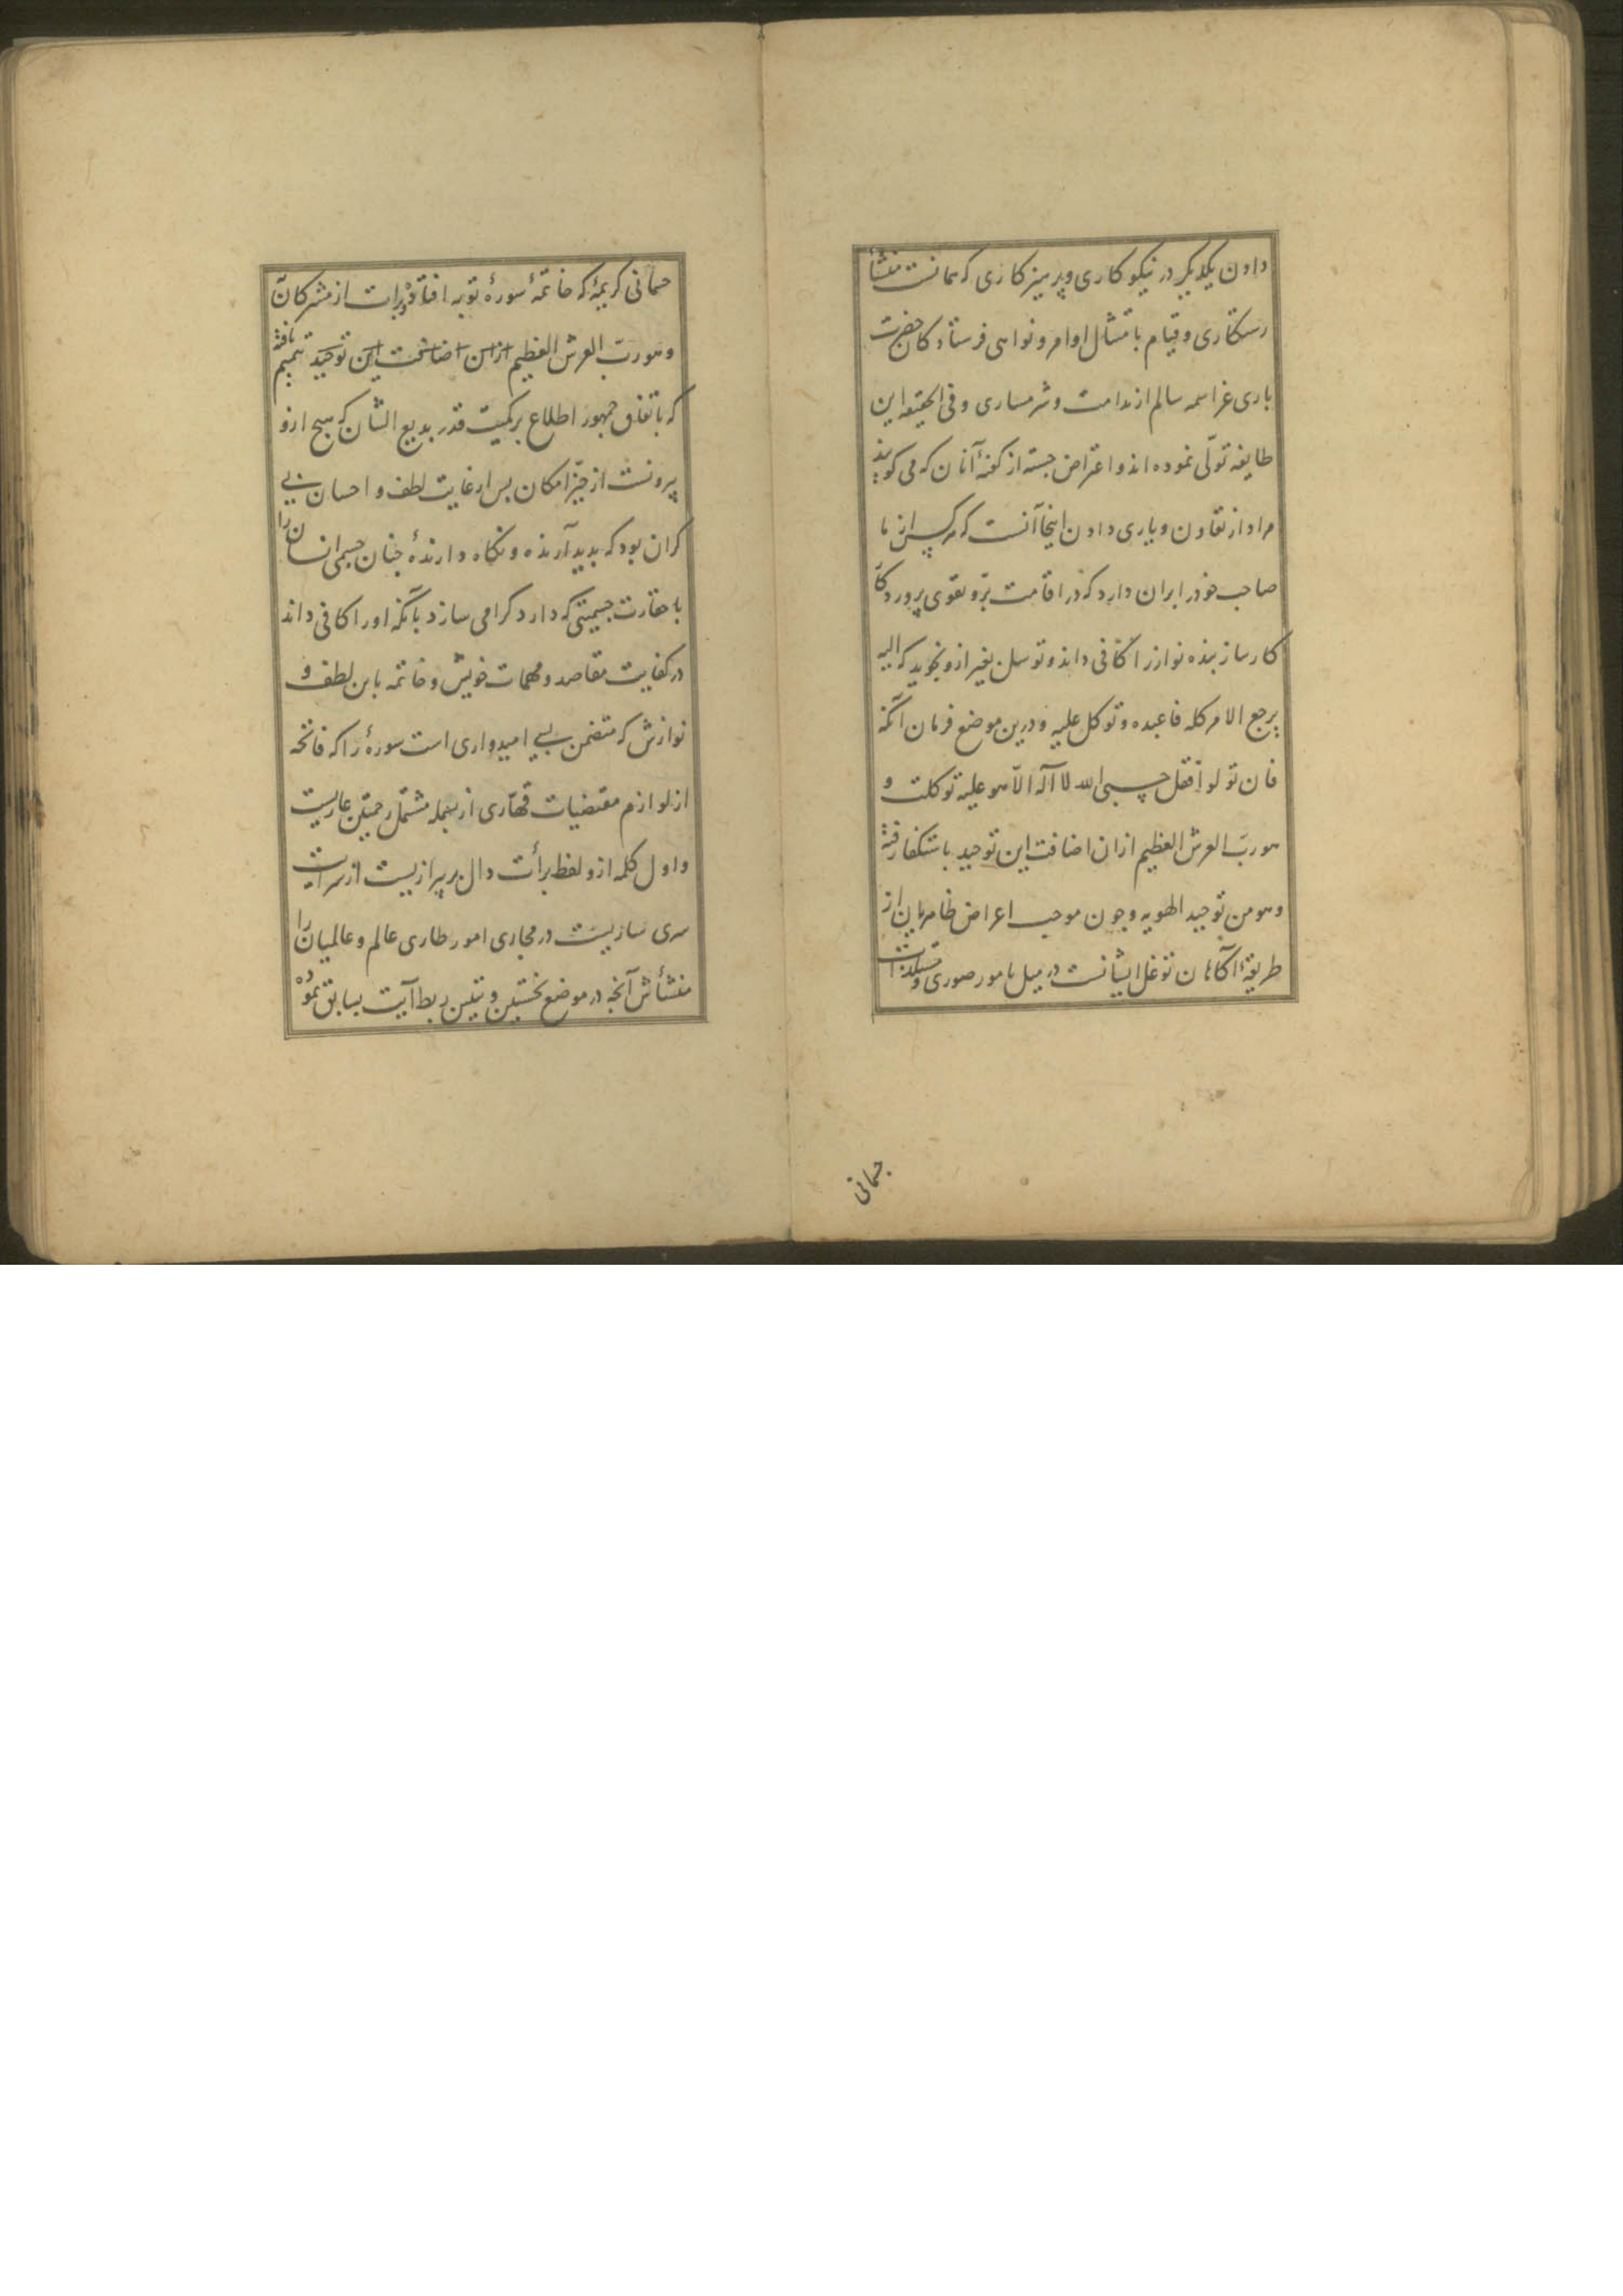 دادن یکدیگر در نیکو کاری و پرهیز کاری که همانست منشأ
رستکاری و قیام بامتثال اوامر و نواهی فرستاد کان حضرت
باری عز اسمه سالم از ندامت و شرمساری و فی الحقیقه این
طایفه تولّی نموده اند و اعتراض جسته از کفتهٔ آنان که می کویند
مراد از تعاون و یاری دادن اینجا آنست که هر کس از ما
صاحب خود را بران دارد که در اقامت برّ و تقوی پروردکار
کار ساز بنده نواز را کافی داند و توسل بغیر ازو نجوید که الیه
یرجع الامر کله فاعبده و توکل علیه و درین موضع فرمان آنکه
فان تولوا فقل حسبی الله لا اله الّا هو علیه توکلت و
هو ربّ العرش العظیم ازان اضافت این توحید باستکفا رفته
و هو من توحید الهویه و چون موجب اعراض ظاهریان از
طریقهٔ آکاهان توغل ایشانست در میل بامور صوری و مستلذات
جسمانی
جسمانی کریمهٔ که خاتمهٔ سورهٔ توبه افتاده و برات از مشرکان
و هو ربّ العرش العظیم ازان اضافت این توحید تتمیم یافته
که باتفاق جمهور اطلاع بر کمیت قدر بدیع الشان که هیچ ازو
بیرونست از حیّز امکان بس از غایت لطف و احسان بی
کران بود که بدید آرنده و نکاه دارندهٔ چنان جسمی انسان را
با حقارت جسمیتی که دارد کرامی سازد بآنکه او را کافی داند
در کفایت مقاصد و مهمات خویش و خاتمه باین لطف و
نوازش که متضمن بسی امیدواری است سورهٔ را که فاتحه
از لوازم مقتضیات قهّاری از بسمله مشتمل رحمتین عاریست
و اول کلمه ازو لفظ برأت دال بر بیرازیست از سرایت
سری ساریست در مجاری امور طاری عالم و عالمیان را
منشأش آنجه در موضع نخستین و تبیین ربط آیت بسابق نموده